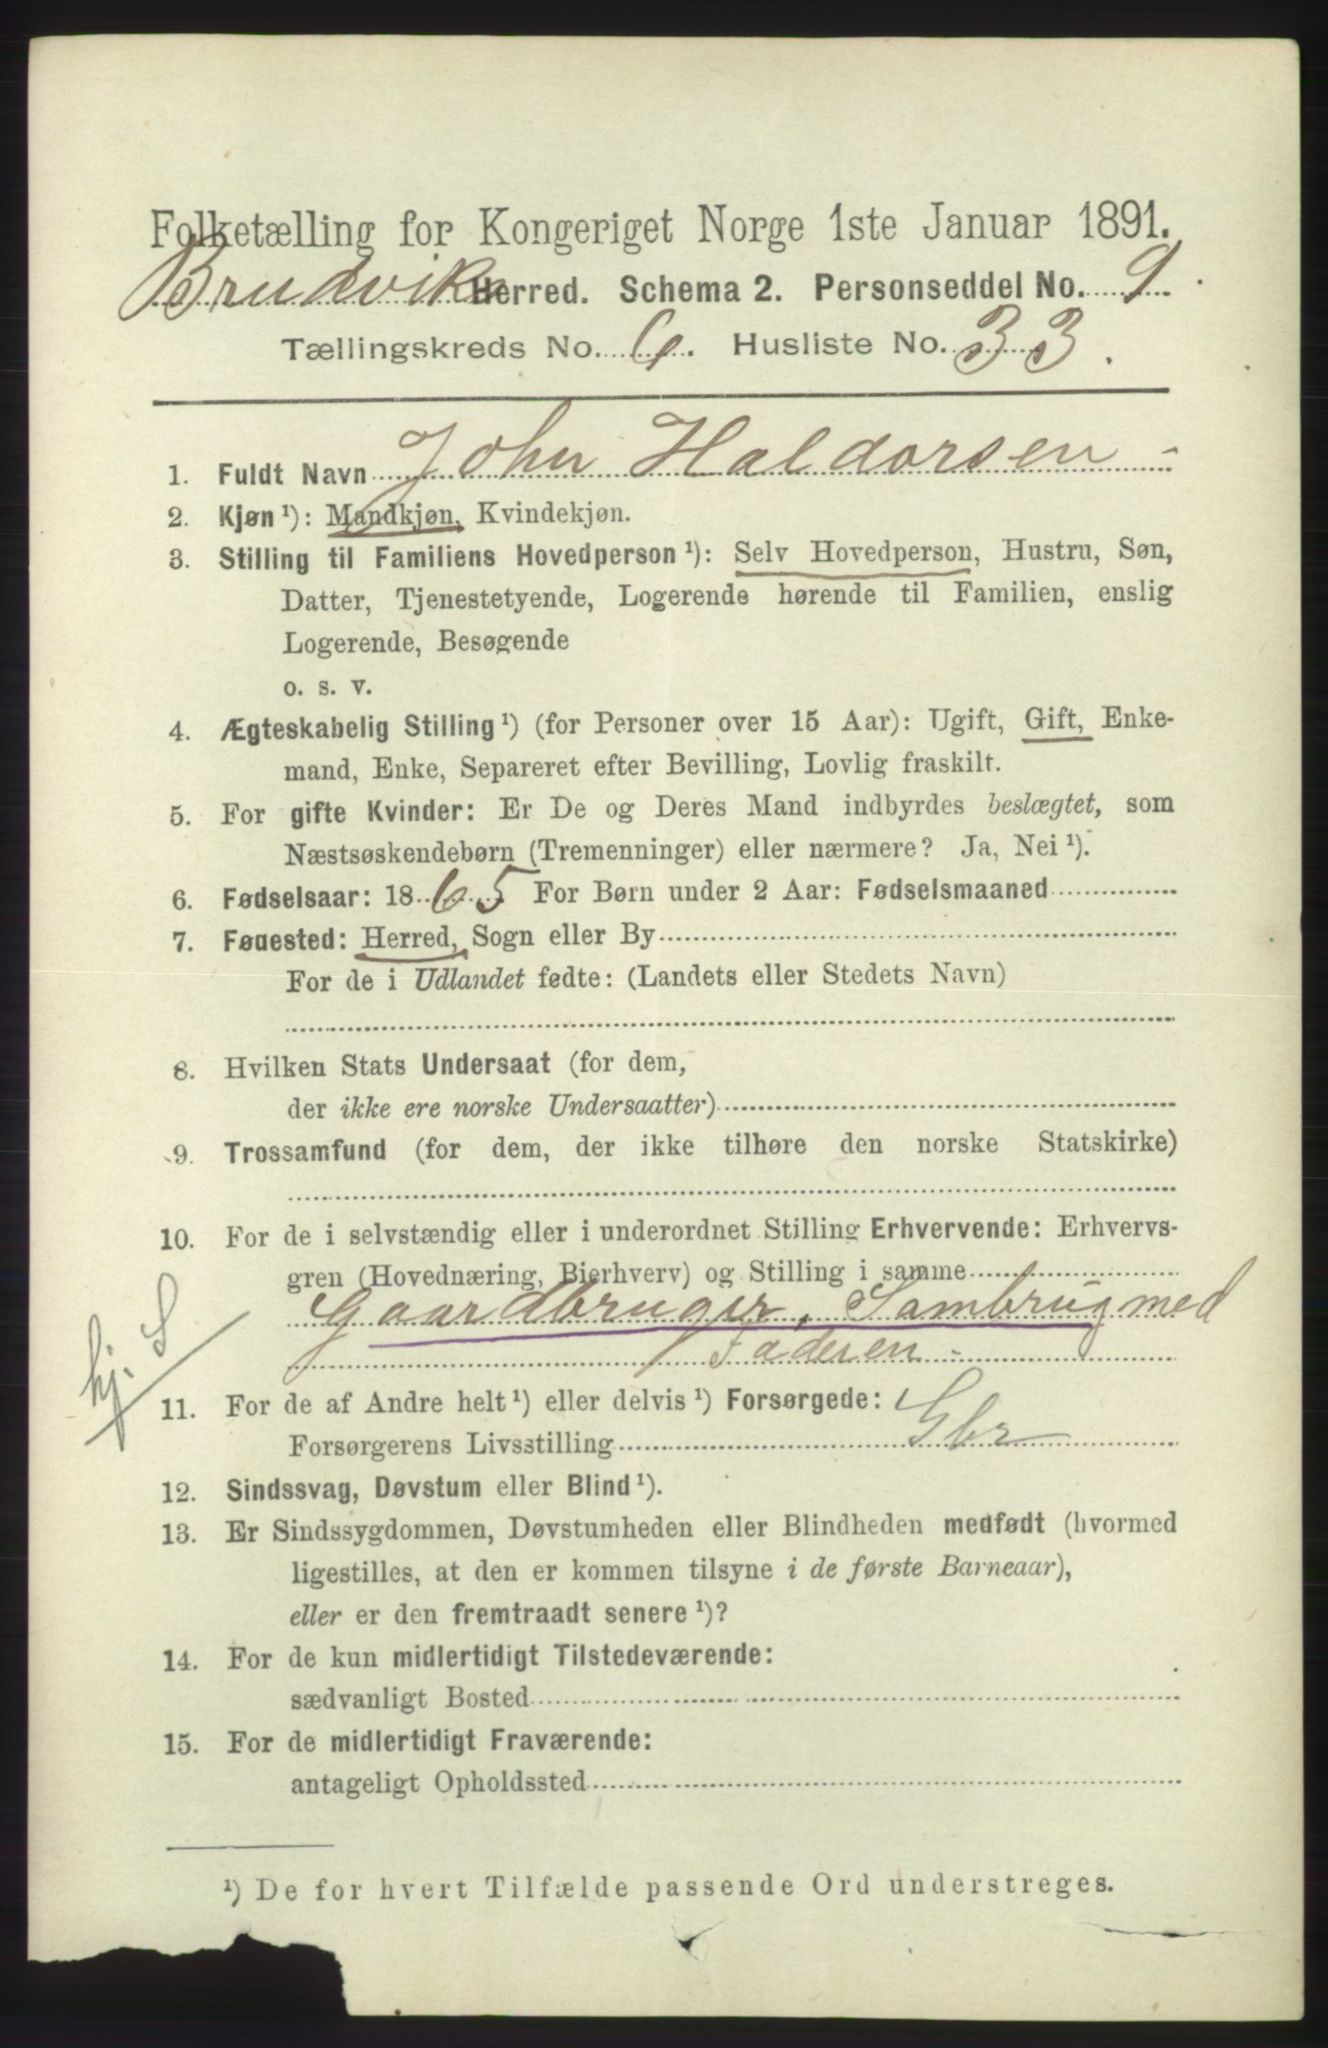 Folketælling for Kongeriget Norge 1ste Januar 1891.
Brudviks Herred. Schema 2. Personseddel No. 9.
Tællingskreds No. 6. Husliste No. 33.
1. Fuldt Navn John Haldorsen -
2. Kjøn¹): Mandkjøn, Kvindekjøn.
3. Stilling til Familiens Hovedperson¹): Selv Hovedperson, Hustru, Søn,
Datter, Tjenestetyende, Logerende hørende til Familien, enslig
Logerende, Besøgende
o. s. v.
4. Ægteskabelig Stilling¹) (for Personer over 15 Aar): Ugift, Gift, Enke-
mand, Enke, Separeret efter Bevilling, Lovlig fraskilt.
5. For gifte Kvinder: Er De og Deres Mand indbyrdes beslægtet, som
Næstsøskendebørn (Tremenninger) eller nærmere? Ja, Nei¹).
6. Fødselsaar: 1865 For Børn under 2 Aar: Fødselsmaaned
7. Føuested: Herred, Sogn eller By
For de i Udlandet fødte: (Landets eller Stedets Navn)
8. Hvilken Stats Undersaat (for dem,
der ikke ere norske Undersaatter)
9. Trossamfund (for dem, der ikke tilhøre den norske Statskirke)
10. For de i selvstændig eller i underordnet Stilling Erhvervende: Erhvervs-
gren (Hovednæring, Bierhverv) og Stilling i samme
Gaardbruger, Sambrug med
Faderen -
hj. S
11. For de af Andre helt¹) eller delvis¹) Forsørgede:
Forsørgerens Livsstilling Gbr
12. Sindssvag, Døvstum eller Blind¹).
13. Er Sindssygdommen, Døvstumheden eller Blindheden medfødt (hvormed
ligestilles, at den er kommen tilsyne i de første Barneaar),
eller er den fremtraadt senere¹)?
14. For de kun midlertidigt Tilstedeværende:
sædvanligt Bosted
15. For de midlertidigt Fraværende:
antageligt Opholdssted
¹) De for hvert Tilfælde passende Ord understreges.